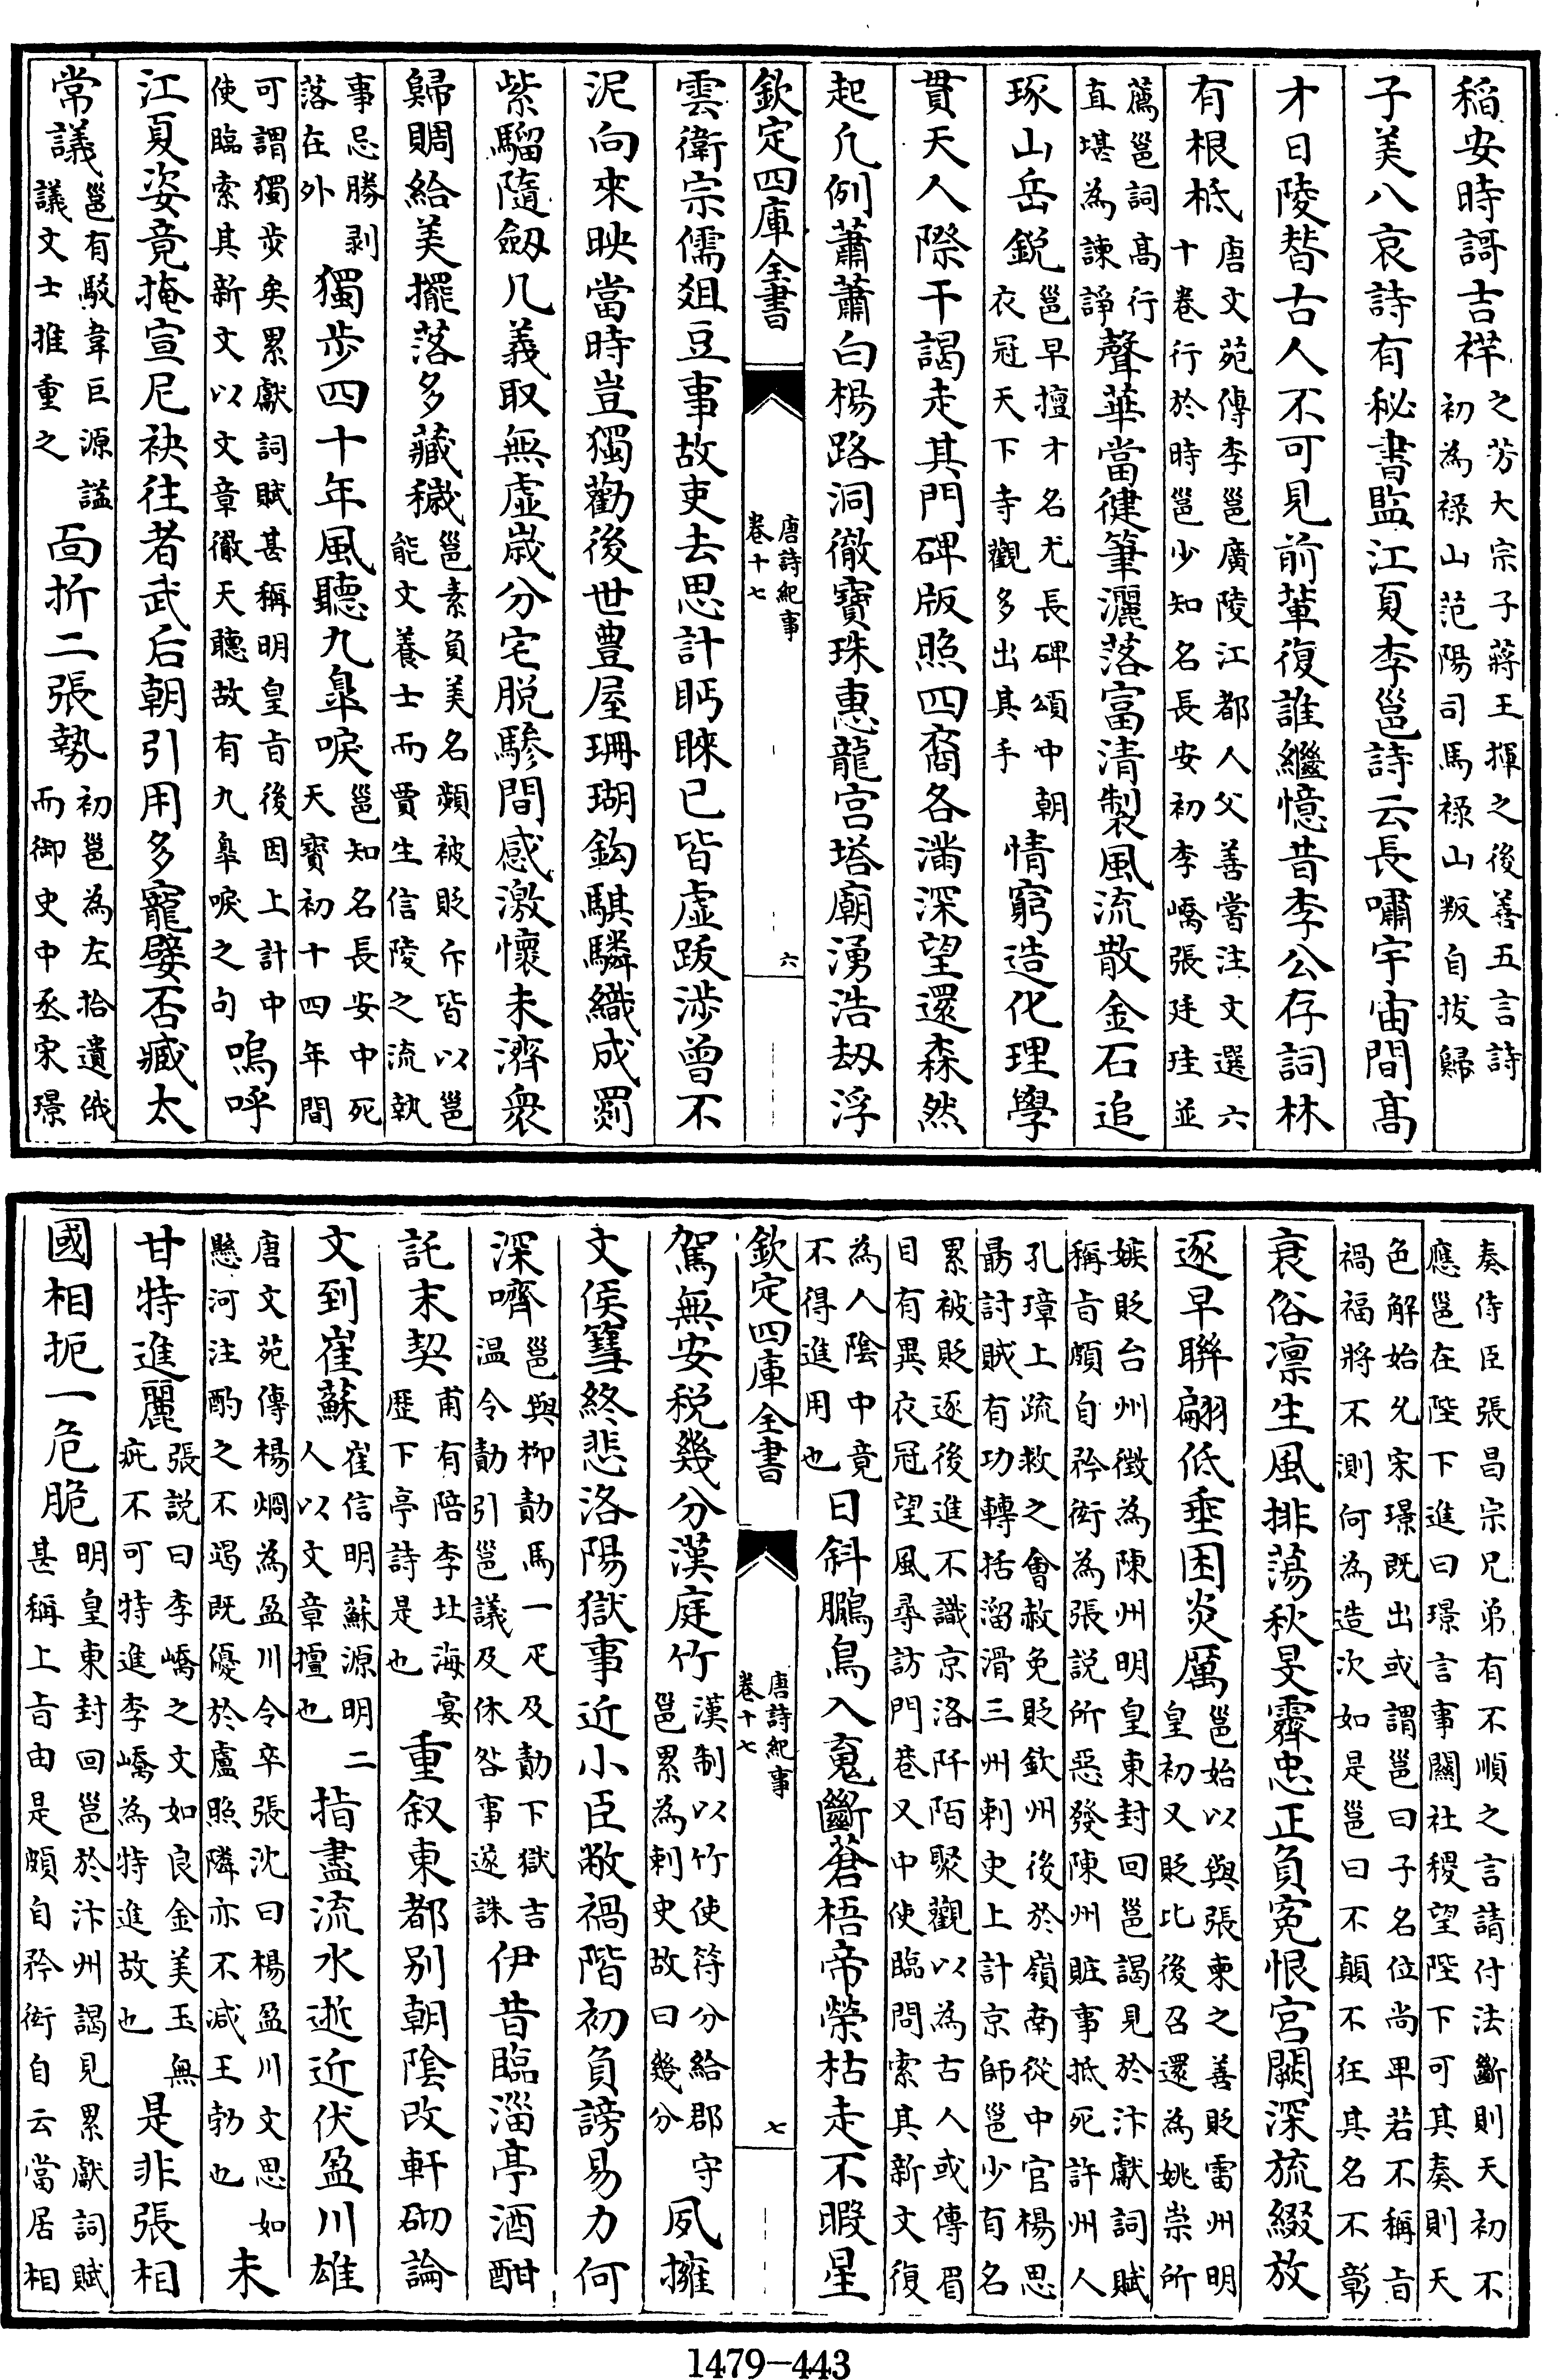 稲安時謌吉祥之芳大宗子蔣王揮之後善五言詩初為禄山范陽司馬禄山叛自拔歸
子美八哀詩有秘書監江夏李邕詩云長嘯宇宙間髙
才日陵替古人不可見前軰復誰繼憶昔李公存詞林
有根柢唐文苑傳李邕廣陵江都人父善嘗注文選六十卷行於時邕少知名長安初李嶠張廷珪並
薦邕詞髙行直堪為諫諍聲華當徤筆灑落富清製風流散金石追
琢山岳鋭邕早擅才名尤長碑頌中朝衣冠天下寺觀多出其手情窮造化理學
貫天人際干謁走其門碑版照四裔各滿深望還森然
起凡例蕭蕭白楊路洞徹寶珠惠龍宫塔廟湧浩劫浮
欽定四庫全書 唐詩紀事 卷十七 六
雲衛宗儒爼豆事故吏去思計眄睞已皆虚跋涉曾不
泥向來映當時豈獨勸後世豊屋珊瑚鈎騏驎織成罽
紫騮隨劔几義取無虚嵗分宅脱驂間感激懷未濟衆
歸賙給美擺落多藏穢邕素負美名頻被貶斥皆以邕能文養士而賈生信陵之流執
事忌勝剥落在外獨步四十年風聽九臯唳邕知名長安中死天寶初十四年間
可謂獨步矣累獻詞賦甚稱明皇㫖後因上計中使臨索其新文以文章徹天聽故有九臯唳之句嗚呼
江夏姿竟掩宣尼袂往者武后朝引用多寵嬖否臧太
常議邕有駮韋巨源諡議文士推重之面折二張勢初邕為左拾遺俄而御史中丞宋璟
奏侍臣張昌宗兄弟有不順之言請付法斷則天初不應邕在陛下進曰璟言事關社稷望陛下可其奏則天
色解始允宋璟既出或謂邕曰子名位尚卑若不稱㫖禍福將不測何為造次如是邕曰不顛不狂其名不彰
衰俗凛生風排蕩秋旻霽忠正負寃恨宫闕深旒綴放
逐早聯翩低垂困炎厲邕始以與張柬之善貶雷州明皇初又貶比後召還為姚崇所
嫉貶台州徴為陳州明皇東封回邕謁見於汴獻詞賦稱㫖頗自矜衒為張説所惡發陳州賍事抵死許州人
孔璋上疏救之會赦免貶欽州後於嶺南從中官楊思朂討賊有功轉括溜滑三州刺史上計京師邕少有名
累被貶逐後進不識京洛阡陌聚觀以為古人或傳眉目有異衣冠望風尋訪門巷又中使臨問索其新文復
為人陰中竟不得進用也日斜鵩鳥入䰟斷蒼梧帝榮枯走不暇星
欽定四庫全書 唐詩紀事 卷十七 七
駕無安税幾分漢庭竹漢制以竹使符分給郡守邕累為刺史故曰幾分夙擁
文侯篲終悲洛陽獄事近小臣敝禍階初負謗易力何
深嚌邕與柳勣馬一疋及勣下獄吉温令勣引邕議及休咎事遂誅伊昔臨淄亭酒酣
託末契甫有陪李北海宴歴下亭詩是也重叙東都别朝陰改軒砌論
文到崔蘇崔信明蘇源明二人以文章擅也指盡流水逝近伏盈川雄
唐文苑傳楊烱為盈川令卒張沈曰楊盈川文思如懸河注酌之不竭既優於盧照隣亦不减王勃也未
甘特進麗張説曰李嶠之文如良金美玉無疵不可特進李嶠為特進故也是非張相
國相扼一危脆明皇東封回邕於汴州謁見累獻詞賦甚稱上㫖由是頗自矜衒自云當居相
1479-443